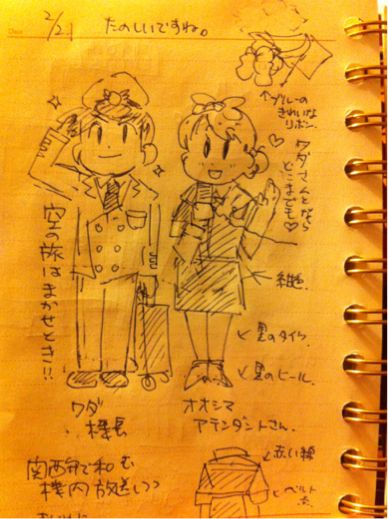 2/21 たのしいですね。
↑ブルーの
きれいな
リボン
ワダさんとなら
どこまでも♡
空の旅はまかせとき!!
紺色
黒のタイツ
黒のヒール
ワダ
機長
オオシマ
アテンダントさん
関西弁で和む
機内放送しつつ
赤い線
ベルト